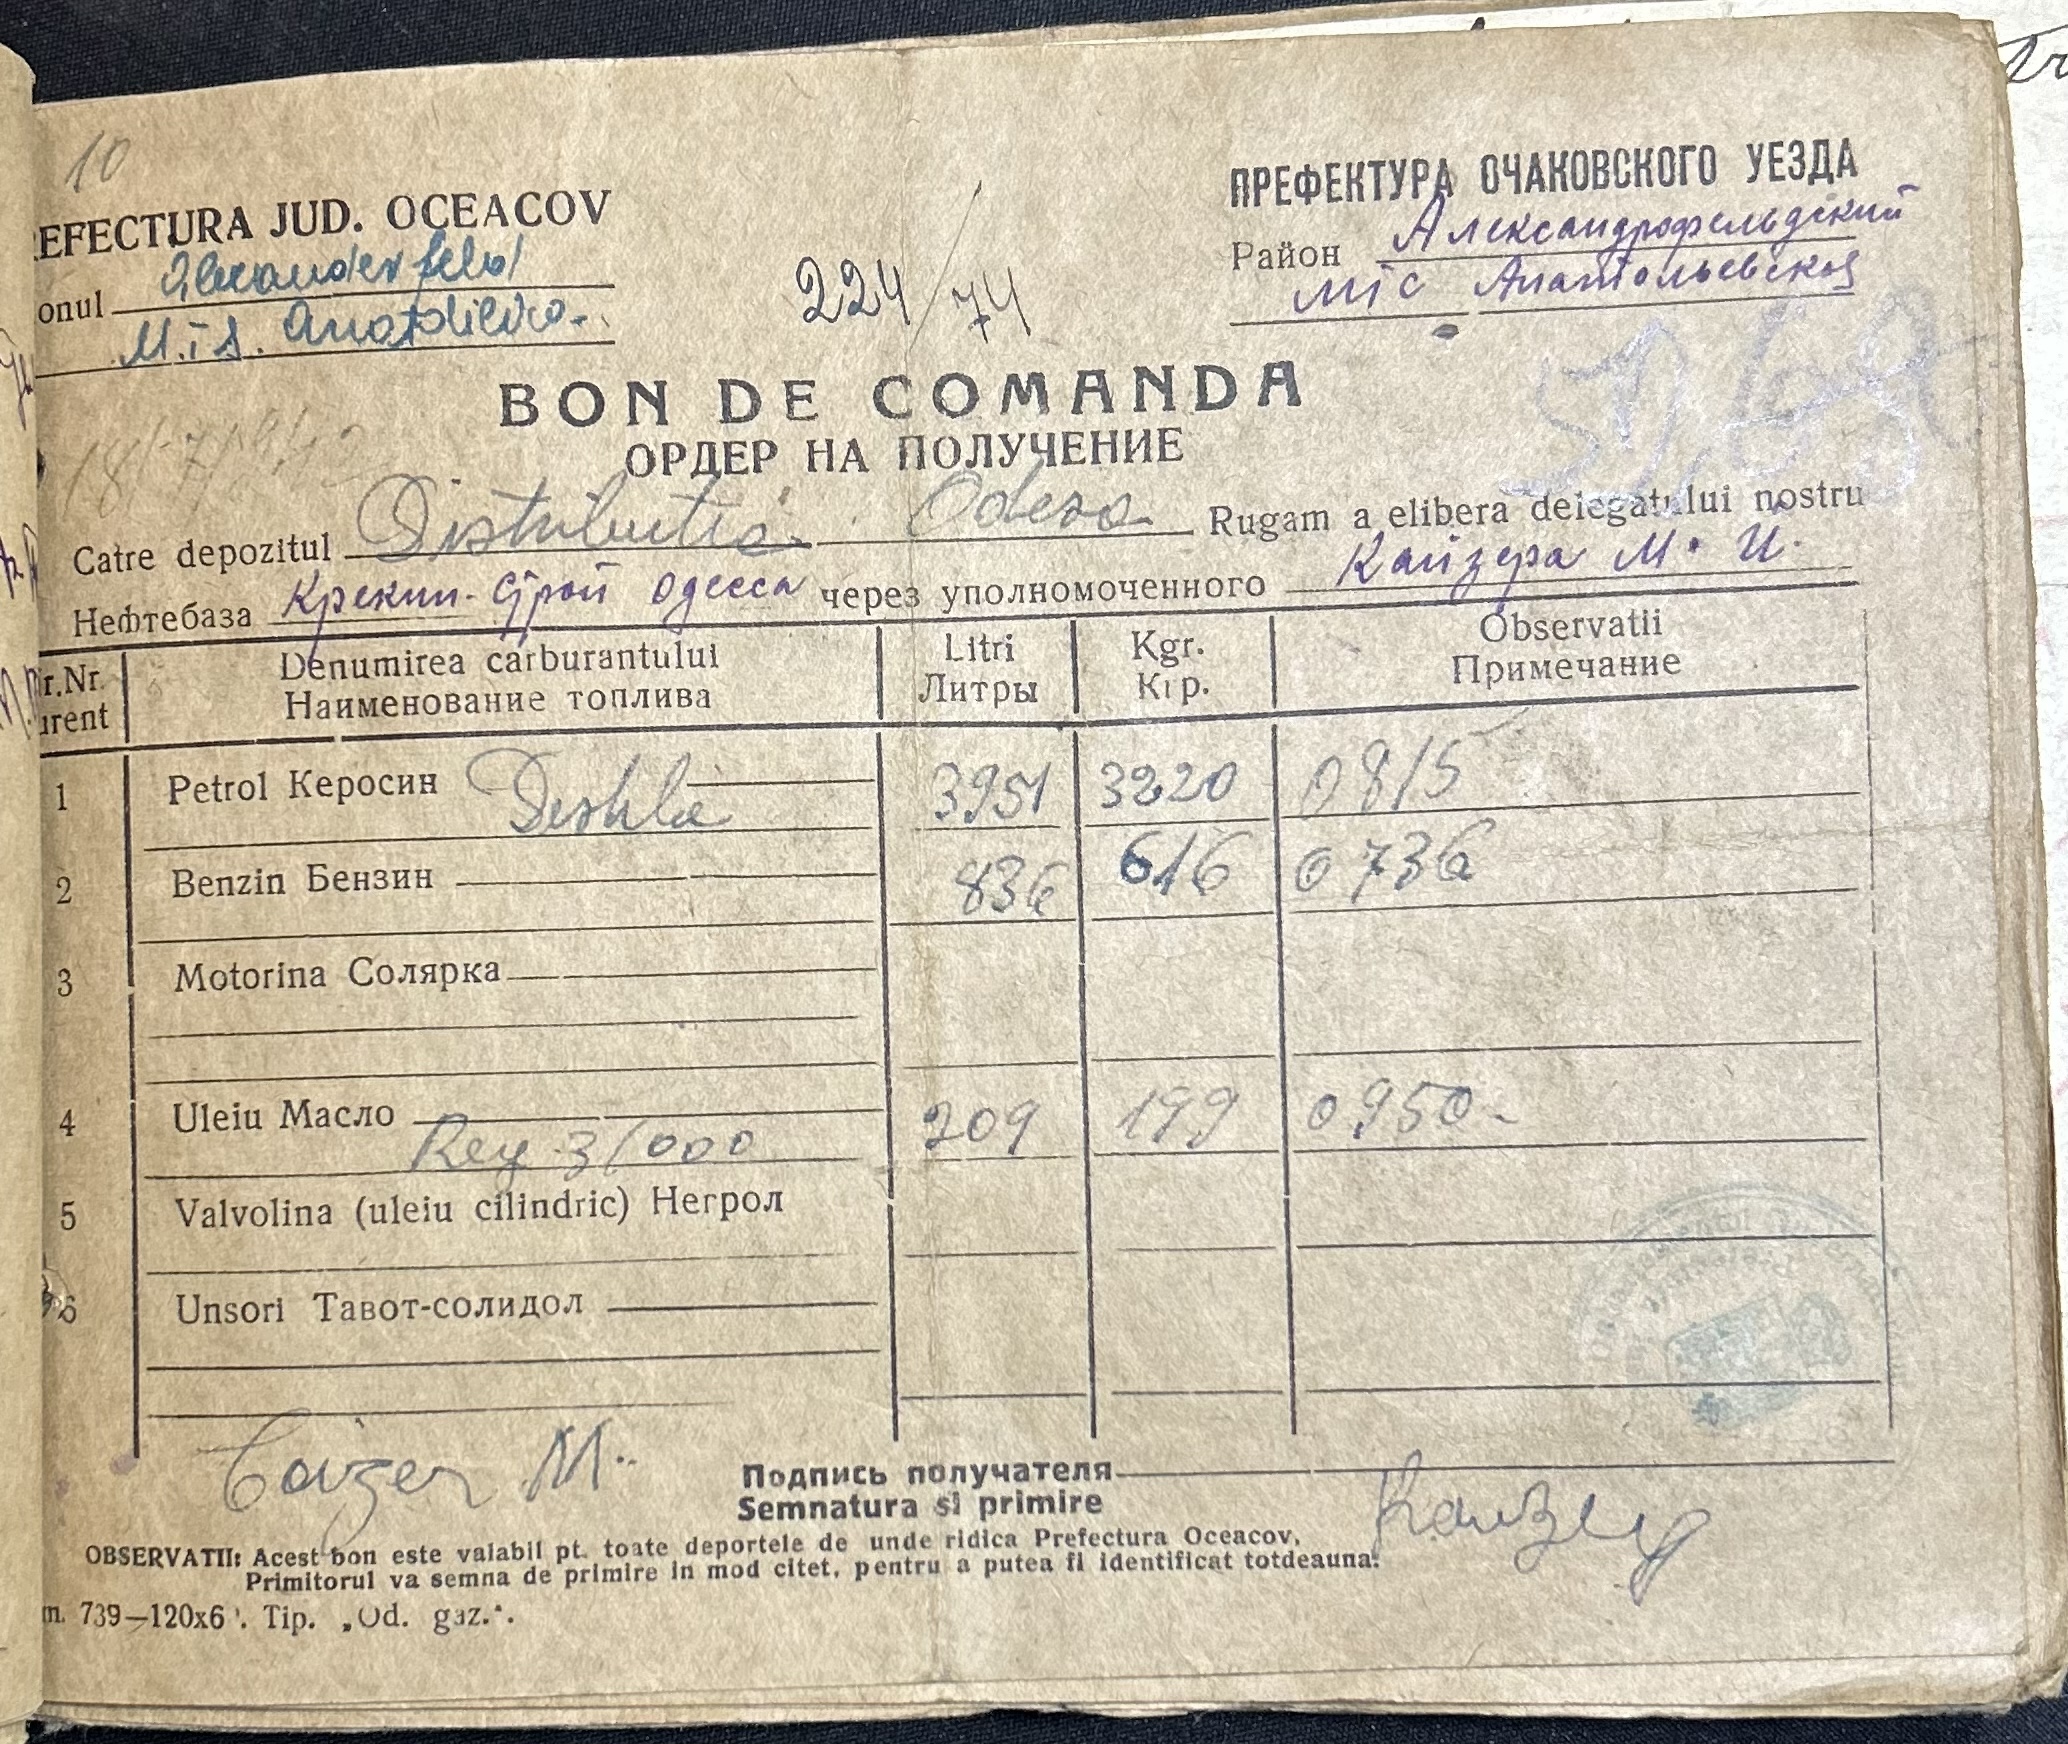 10
REFECTURA JUD. OCEACOV
onul Alexanderfeld
M.T.S. Anatolievca.
224/74
ПРЕФЕКТУРА ОЧАКОВСКОГО УЕЗДА
Район Александрофельдский
мтс Анатольевской
BON DE COMANDA
ОРДЕР НА ПОЛУЧЕНИЕ
18/7/1942
Catre depozitul Distributia Odesa Rugam a elibera delegatului nostru
Нефтебаза Крекин-Строй Одесса через уполномоченного Кайзера М. И.
r.Nr. Denumirea carburantului Litri Kgr. Observatii
urent Наименование топлива Литры Кгр. Примечание
1 Petrol Керосин 3951 3220 0815
2 Benzin Бензин 836 616 0736
3 Motorina Солярка
4 Uleiu Масло 209 199 0950-
31000
5 Valvolina (uleiu cilindric) Негрол
6 Unsori Тавот-солидол
Caizer M.
Подпись получателя
Semnatura si primire
OBSERVATII: Acest bon este valabil pt. toate deportele de unde ridica Prefectura Oceacov,
Primitorul va semna de primire in mod citet, pentru a putea fi identificat totdeauna.
m. 739—120x6 . Tip. „Od. gaz.".